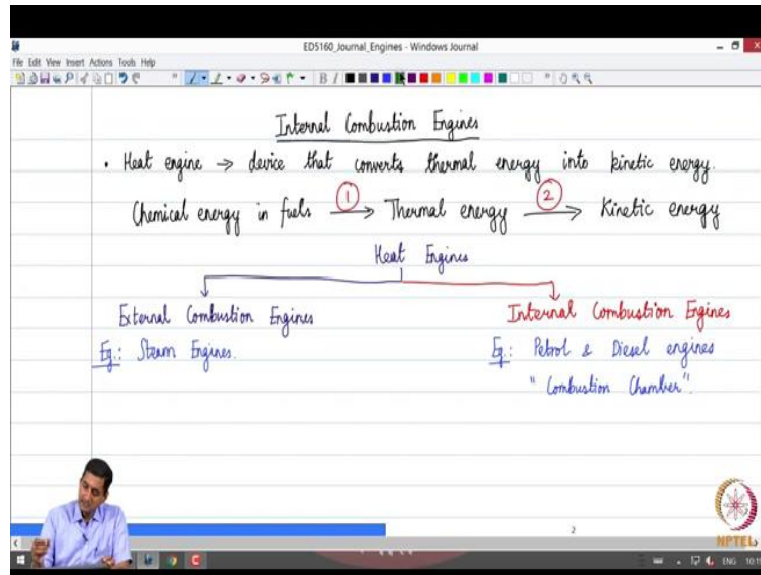 ED5160_Journal_Engines - Windows Journal
File Edit View Insert Actions Tools Help
Internal Combustion Engines
• Heat engine → device that converts thermal energy into kinetic energy.
Chemical energy in fuels ① → Thermal energy ② → Kinetic energy
Heat Engines
External Combustion Engines
Eg.: Steam Engines.
Internal Combustion Engines
Eg.: Petrol & Diesel engines
"Combustion Chamber".
2
NPTEL
ENG